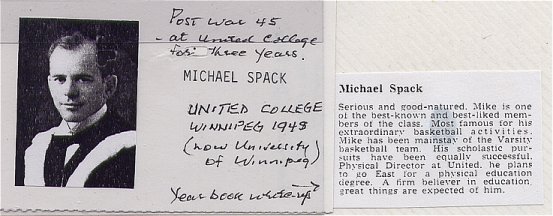 Post war 45
- at United College
for three years.
MICHAEL SPACK
UNITED COLLEGE
WINNIPEG 1948
(now University
of Winnipeg)
Year book write-up
Michael Spack
Serious and good-natured. Mike is one
of the best-known and best-liked mem-
bers of the class. Most famous for his
extraordinary basketball activities.
Mike has been mainstay of the Varsity
basketball team. His scholastic pur-
suits have been equally successful.
Physical Director at United, he plans
to go East for a physical education
degree. A firm believer in education,
great things are expected of him.